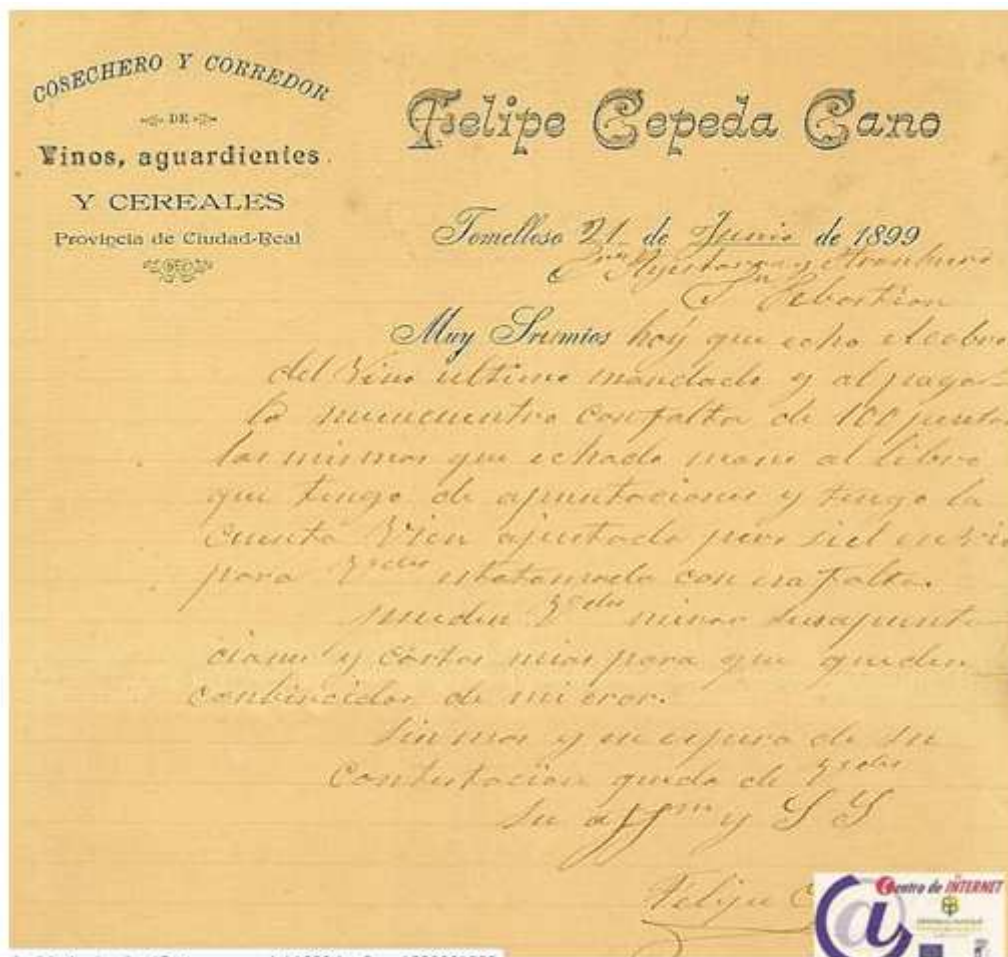 COSECHERO Y CORREDOR
DE
Vinos, aguardientes
Y CEREALES
Provincia de Ciudad-Real
Felipe Cepeda Cano
Tomelloso 21 de Junio de 1899
Sn Sebastian
Muy Sresmios hoy que echo el cobro
del Vino ultimo mandado y al pagar
lo mencuentro con falta de 100 pesetas
las mismas que echado mano al libro
que tengo de apuntaciones y tengo la
cuenta Vien ajustada pero
para con esa falta.
pueden mirar susapunta
ciones y cartas mias para que queden
conbincidos de mi eror.
Sin mas y en espera de su
Contestacion queda de
Su affmo y S S
Felipe C
Centro de INTERNET